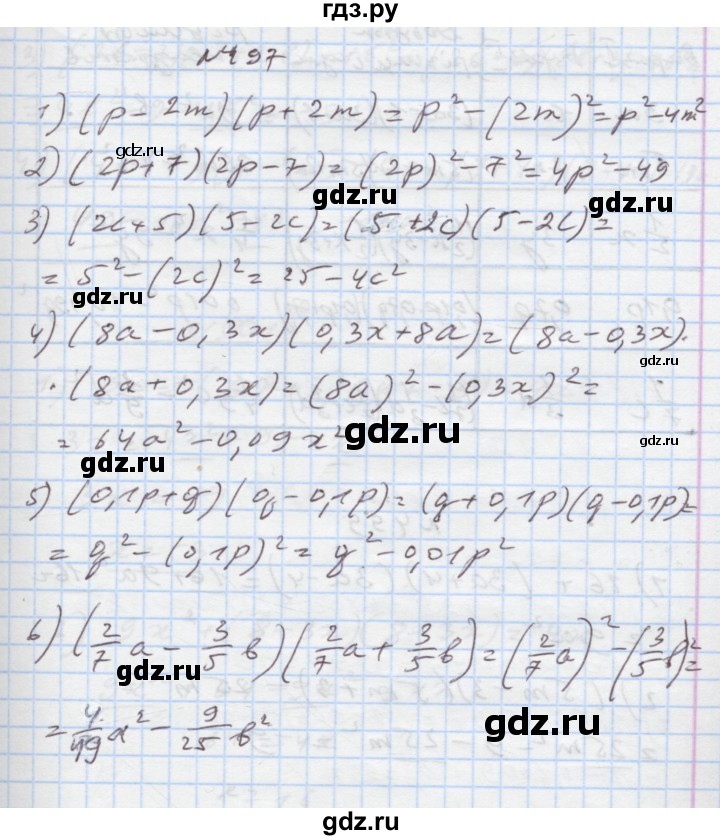 гдз.ру
№497
1) (p - 2m)(p + 2m) = p² - (2m)² = p² - 4m²
gdz.ru
2) (2p+7)(2p-7) = (2p)² - 7² = 4p² - 49
gdz.ru
3) (2c+5)(5-2c) = (5+2c)(5-2c) =
= 5² - (2c)² = 25 - 4c²
gdz.ru
4) (8a - 0,3x)(0,3x+8a) = (8a - 0,3x)·
gdz.ru
· (8a + 0,3x) = (8a)² - (0,3x)² =
= 64a² - 0,09x²
gdz.ru
gdz.ru
gdz.ru
5) (0,1p+q)(q - 0,1p) = (q+0,1p)(q-0,1p) =
= q² - (0,1p)² = q² - 0,01p²
6) (2/7 a - 3/5 b)(2/7 a + 3/5 b) = (2/7 a)² - (3/5 b)² =
gdz.ru
gdz.ru
= 4/49 a² - 9/25 b²
gdz.ru
gdz.ru
gdz.ru